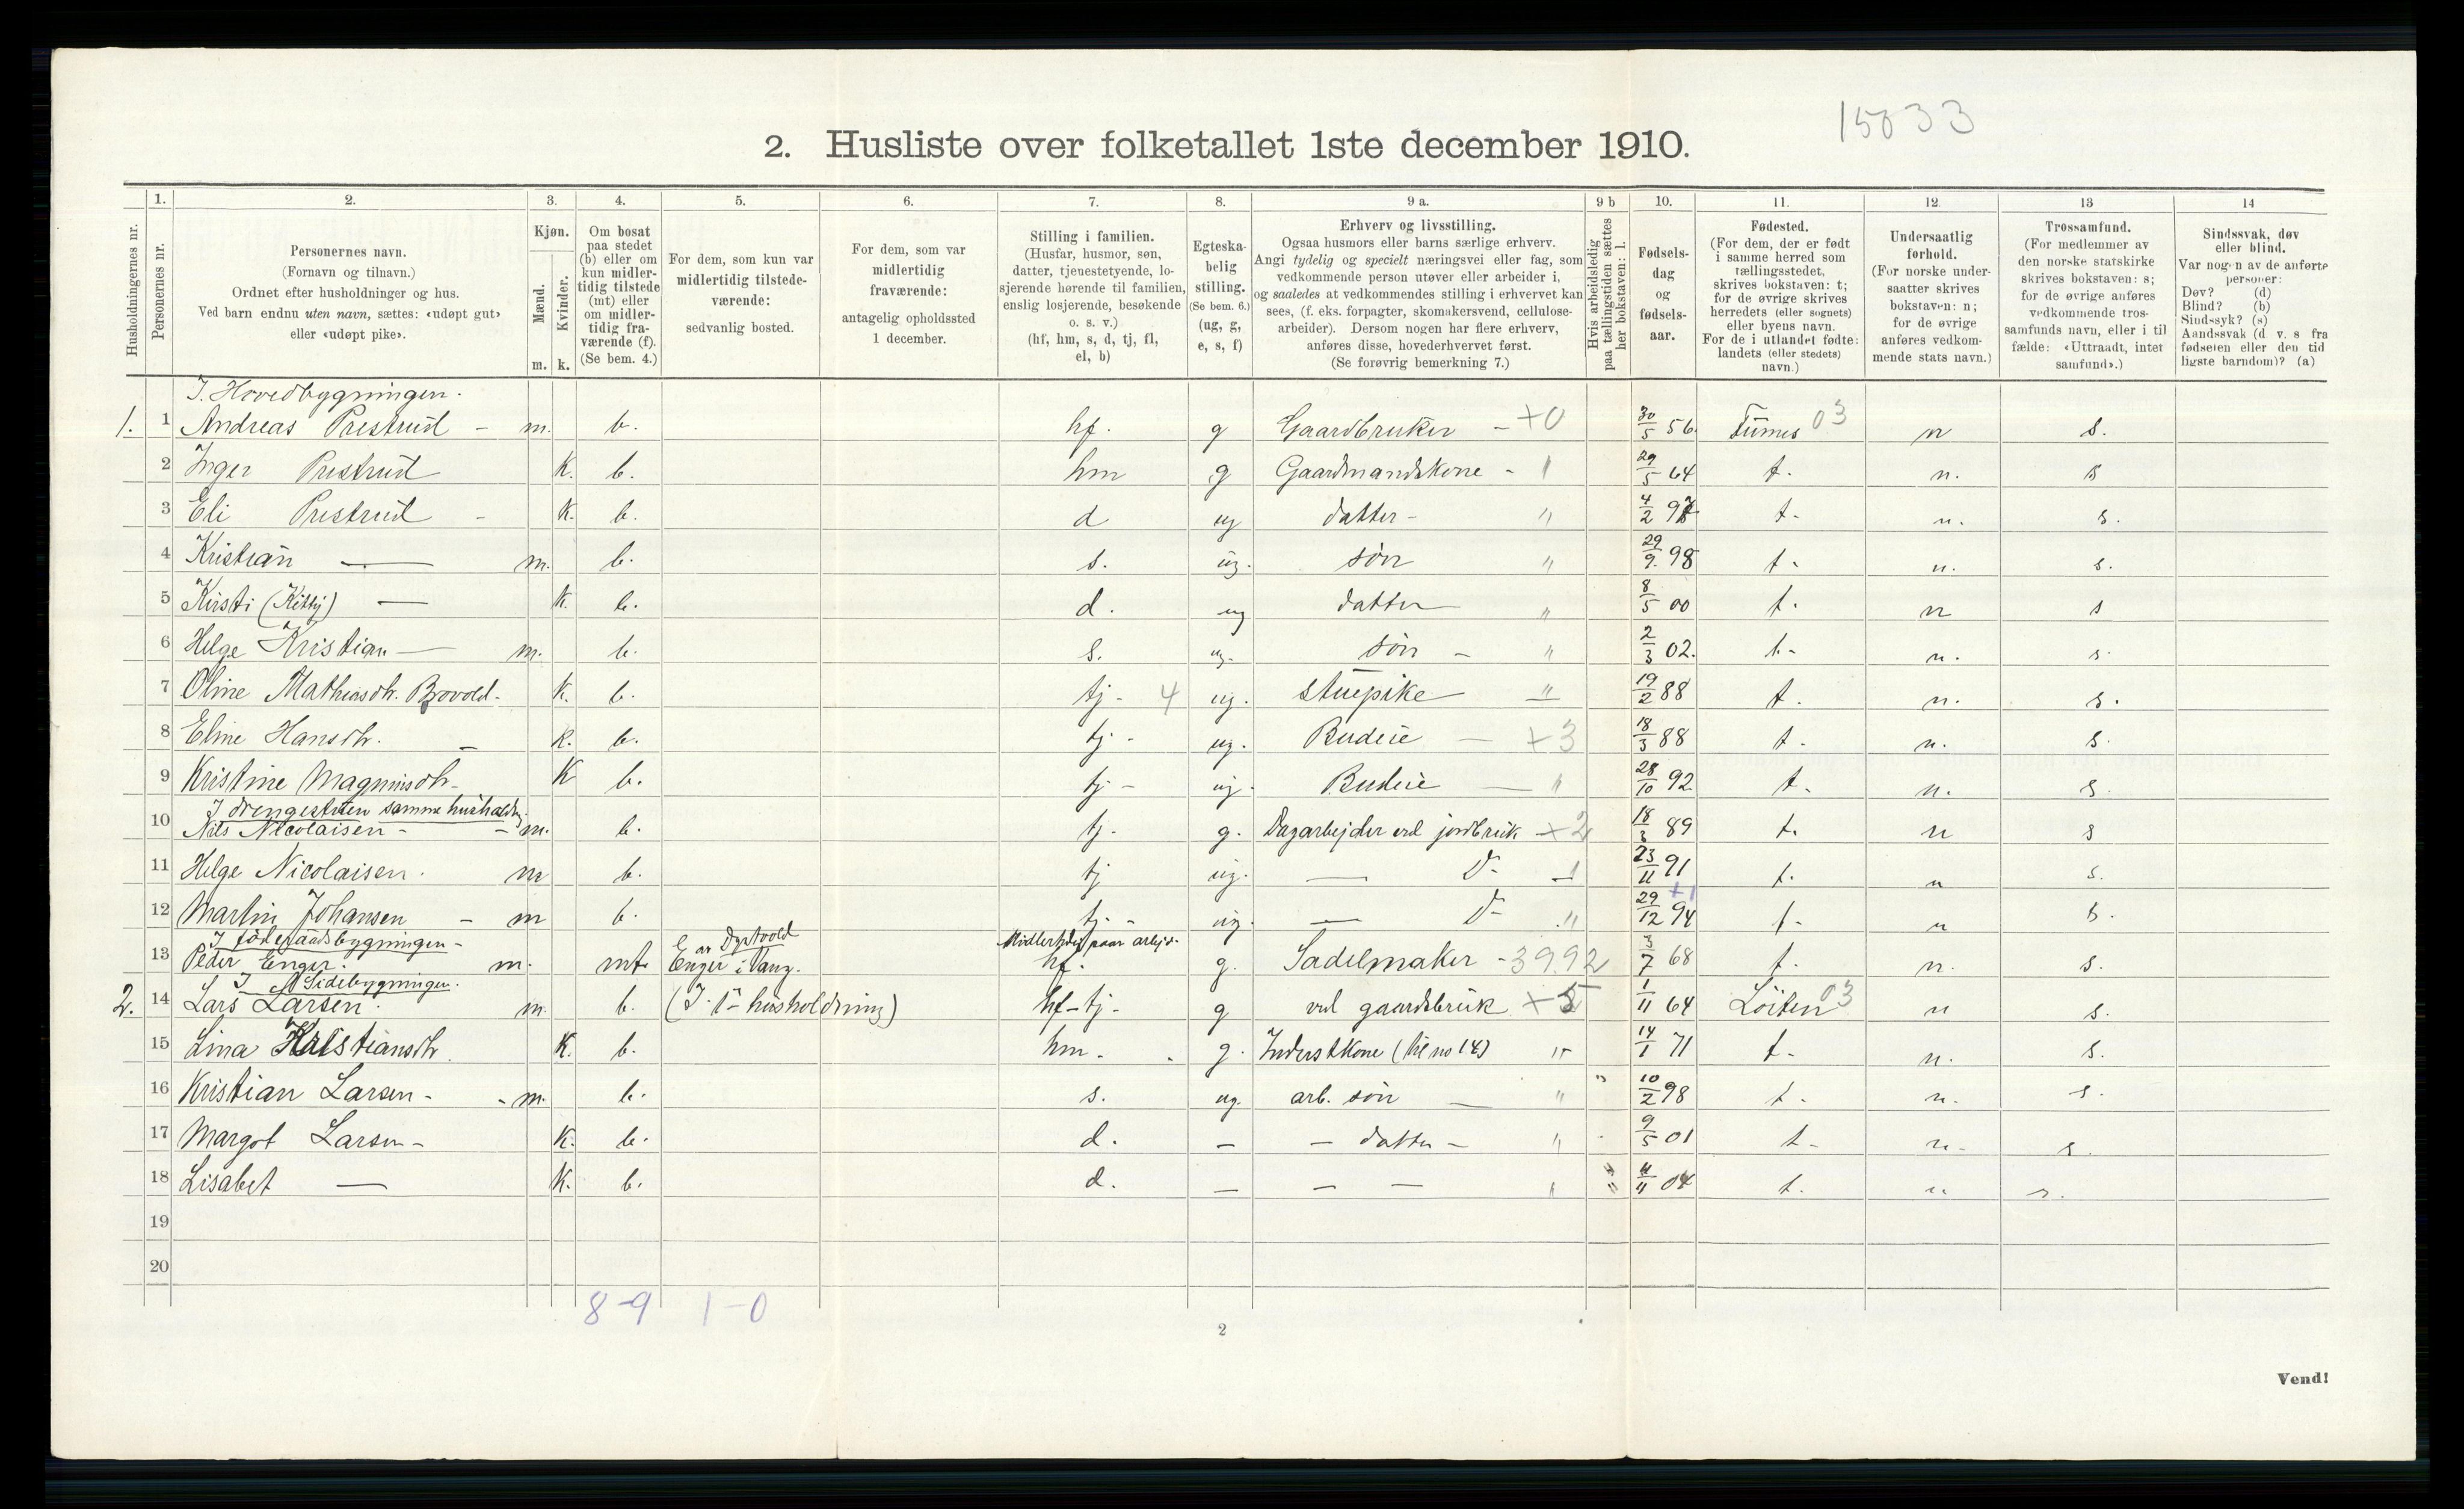 15033
2. Husliste over folketallet 1ste december 1910.
Husholdningernes nr.
1. Personernes nr.
2. Personernes navn.
(Fornavn og tilnavn.)
Ordnet efter husholdninger og hus.
Ved barn endnu uten navn, sættes: «udøpt gut»
eller «udøpt pike».
3. Kjøn.
Mænd. Kvinder.
m. k.
4. Om bosat
paa stedet
(b) eller om
kun midler-
tidig tilstede
(mt) eller
om midler-
tidig fra-
værende (f).
(Se bem. 4.)
5. For dem, som kun var
midlertidig tilstede-
værende:
sedvanlig bosted.
6. For dem, som var
midlertidig
fraværende:
antagelig opholdssted
1 december.
7. Stilling i familien.
(Husfar, husmor, søn,
datter, tjenestetyende, lo-
sjerende hørende til familien,
enslig losjerende, besøkende
o. s. v.)
(hf, hm, s, d, tj, fl,
el, b)
8. Egteska-
belig
stilling.
(Se bem. 6.)
(ug, g,
e, s, f)
9 a. Erhverv og livsstilling.
Ogsaa husmors eller barns særlige erhverv.
Angi tydelig og specielt næringsvei eller fag, som
vedkommende person utøver eller arbeider i,
og saaledes at vedkommendes stilling i erhvervet kan
sees, (f. eks. forpagter, skomakersvend, cellulose-
arbeider). Dersom nogen har flere erhverv,
anføres disse, hovederhvervet først.
(Se forøvrig bemerkning 7.)
9 b Hvis arbeidsledig
paa tællingstiden sættes
her bokstaven: l.
10. Fødsels-
dag
og
fødsels-
aar.
11. Fødested.
(For dem, der er født
i samme herred som
tællingsstedet,
skrives bokstaven: t;
for de øvrige skrives
herredets (eller sognets)
eller byens navn.
For de i utlandet fødte:
landets (eller stedets)
navn.)
12. Undersaatlig
forhold.
(For norske under-
saatter skrives
bokstaven: n;
for de øvrige
anføres vedkom-
mende stats navn.)
13 Trossamfund.
(For medlemmer av
den norske statskirke
skrives bokstaven: s;
for de øvrige anføres
vedkommende tros-
samfunds navn, eller i til
fælde: «Uttraadt, intet
samfund».)
14 Sindssvak, døv
eller blind.
Var nogen av de anførte
personer:
Døv? (d)
Blind? (b)
Sindssyk? (s)
Aandssvak (d v. s fra
fødselen eller den tid
ligste barndom)? (a)
I. Hovedbygningen.
1. 1 Andreas Prestrud - m. b. hf. g Gaardbruker - +0 30/5 56 Furnes 03 n s.
2 Inger Prestrud K. b. hm g Gaardmandskone - " 29/5 64 t. n. s
3 Eli Prestrud - K. b. d ug datter - " 4/2 97 t. n. s.
4 Kristian — m. b. s. ug. søn " 29/9 98 t. n. s.
5 Kirsti (Kitty) — K. b. d. ug datter " 8/5 00 t. n s
6 Helge Kristian — m. b. s. ug. søn - " 2/3 02. t. n. s.
7 Oline Mathiasdtr. Brovold. K. b. tj - 4 ug. stuepike " 19/2 88 t. n. s.
8 Eline Hansdtr. - K. b. tj - ug. Budeie - +3 18/3 88 t. n. s.
9 Kristine Magnusdtr. K b. tj - ug. Budeie - " 28/10 92 t. n. s.
I drengestuen samme hushold.
10 Nils Nicolaisen - m. b. tj. g. Dagarbejder ved jordbruk +2 18/3 89 t. n s
11 Helge Nicolaisen. m b. tj ug. — D- 23/11 91 t. n s.
12 Martin Johansen - m b. tj. - ug. — D- " 29/12 94 +1 t. n s.
I föderaadsbygningen -
13 Peder Enger. m. mt Enger i Vang. Midlertidig paa arbejd. hf. g. Sadelmaker - 3992 3/7 68 t. n. s.
I Sidebygningen.
2. 14 Lars Larsen. m. b. (I 1 husholdning) hf - tj - g ved gaardsbruk +5 1/11 64 Löiten 03 n s.
15 Lina Kristiansdtr. K. b. hm. g. Inderstkone (til no 14) " 14/1 71 t. n. s.
16 Kristian Larsen - m. b. s. ug. arb. søn — " " 10/2 98 t. n. s.
17 Margot Larsen - K. b. d. - - datter - " 9/5 01 t. n. s.
18 Lisabet — K. b. d. - - - " " 4/11 04 t. n s.
19
20
8-9 1-0
2
Vend!